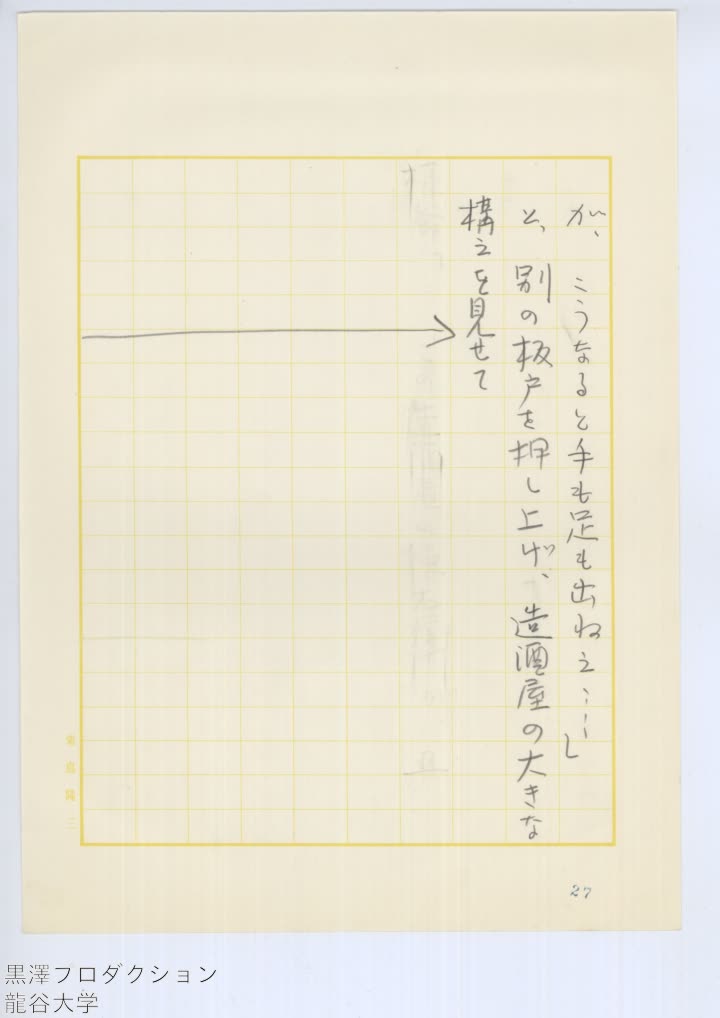 が、こうなると手も足も出ねえ……」
と、別の板戸を押し上げ、造酒屋の大きな
構えを見せて
菊島隆三
27
黒澤プロダクション
龍谷大学